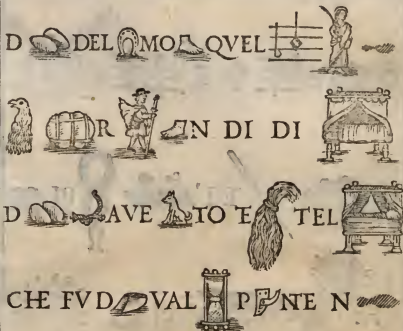 D DEL MO QVEL
R N DI DI
D AVE TO TE TEL
CHE FV D VAL P NTE N